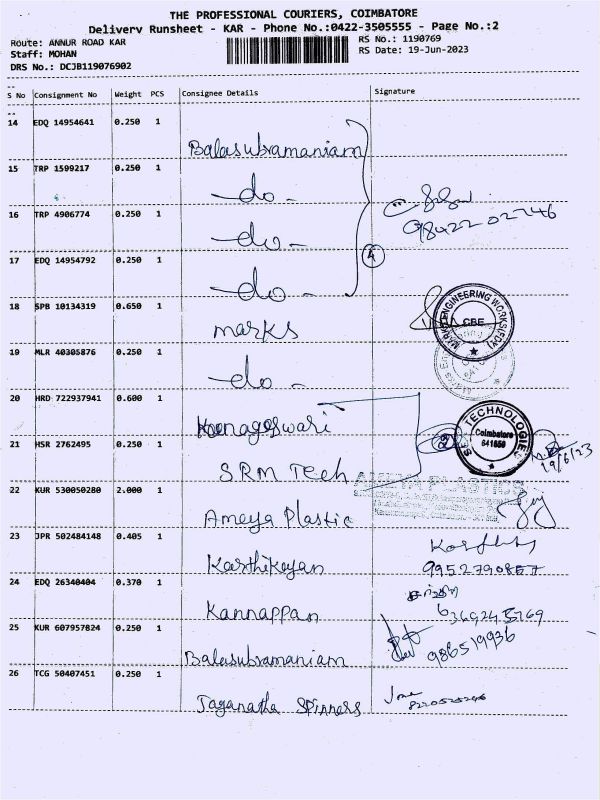 THE PROFESSIONAL COURIERS, COIMBATORE
Delivery Runsheet - KAR - Phone No.:0422-3505555 - Page No.:2
Route: ANNUR ROAD KAR
RS No.: 1190769
Staff: MOHAN
RS Date: 19-Jun-2023
DRS No.: DCJB119076902
S No Consignment No Weight PCS Consignee Details Signature
14 EDQ 14954641 0.250 1 Balasubramaniam
15 TRP 1599217 0.250 1 -do-
16 TRP 4906774 0.250 1 -do- 98422 02246
17 EDQ 14954792 0.250 1 -do- 4
18 SPB 10134319 0.650 1 marks
MARKS ENGINEERING WORKS(FDY) CBE
19 MLR 40305876 0.250 1 -do-
20 HRD 722937941 0.600 1 Koonageswari
TECHNOLOGIES Coimbatore
2
19/6/23
21 HSR 2762495 0.250 1 SRM Tech
AMEYA PLASTICS
22 KUR 530050280 2.000 1 Ameya Plastic
23 JPR 502484148 0.405 1 Karthikeyan
24 EDQ 26340404 0.370 1 Kannappan
25 KUR 607957824 0.250 1 Balasubramaniam 986519936
26 TCG 50407451 0.250 1 Jaganatha Spinners